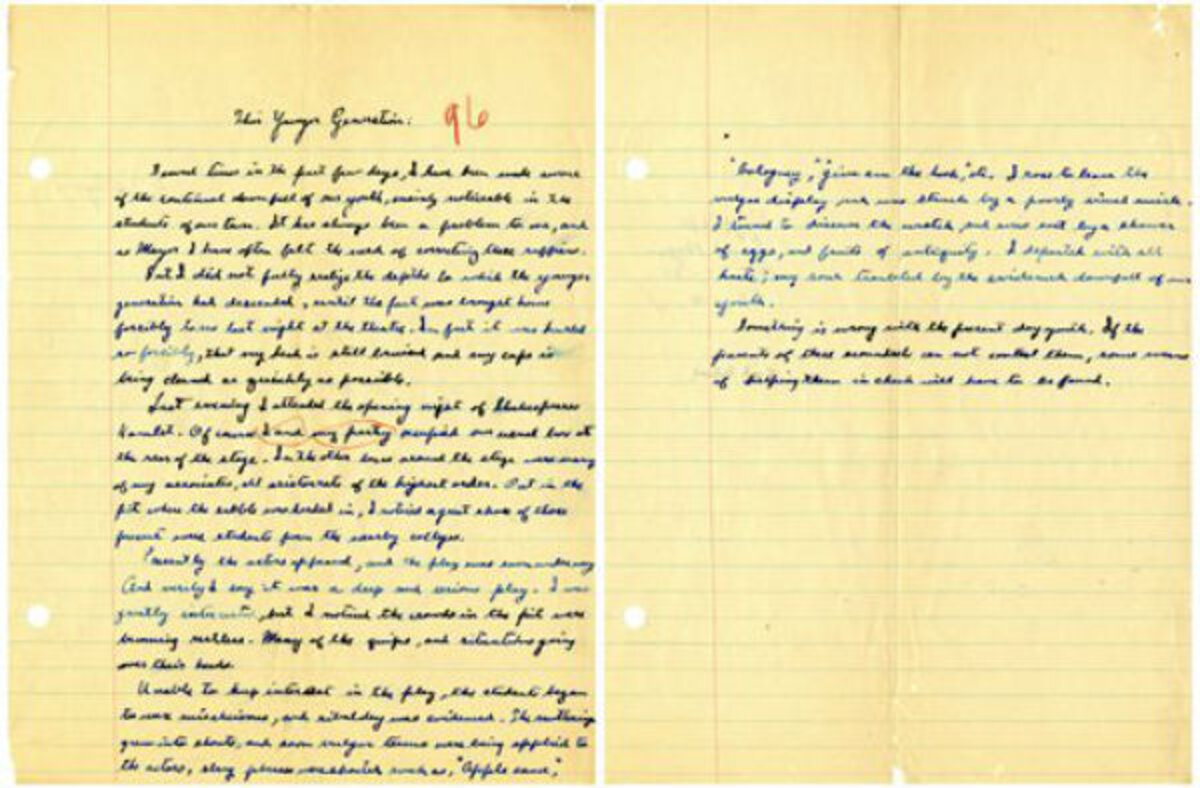 This Younger Generation: 96
Several times in the past few days, I have been made aware
of the continual downfall of our youth, mainly noticeable in the
students of our town. It has always been a problem to me, and
as Mayor I have often felt the need of correcting these ruffians.
But I did not fully realize the depths to which the younger
generation had descended, until the fact was brought home
forcibly to me last night at the theatre. In fact it was hurled
so forcibly, that my back is still bruised and my cape is
being cleaned as quickly as possible.
Last evening I attended the opening night of Shakespeares
Hamlet. Of course I and my party occupied our usual box at
the rear of the stage. In the other boxes around the stage were many
of my associates, all aristocrats of the highest order. But in the
pit where the rabble was herded in, I noticed a great share of those
present were students from the nearby colleges.
Presently the actors appeared, and the play was soon underway
And verily I say it was a deep and serious play. I was
greatly interested, but I noticed the crowds in the pit were
becoming restless. Many of the quips, and situations going
over their heads.
Unable to keep interest in the play, the students began
to wax mischievous, and ribaldry was evidenced. The mutterings
grew into shouts, and soon vulgar terms were being applied to
the actors, slang phrases were shouted such as, "Apple sauce,"
"bologney," "give em the hook," etc. I rose to leave the
vulgar display and was struck by a poorly aimed missile.
I turned to discern the wretch and was met by a shower
of eggs, and fruits of antiquity. I departed with all
haste; my soul troubled by the evidenced downfall of our
youth.
Something is wrong with the present day youth. If the
parents of these scoundrels can not control them, some means
of helping them in check will have to be found.